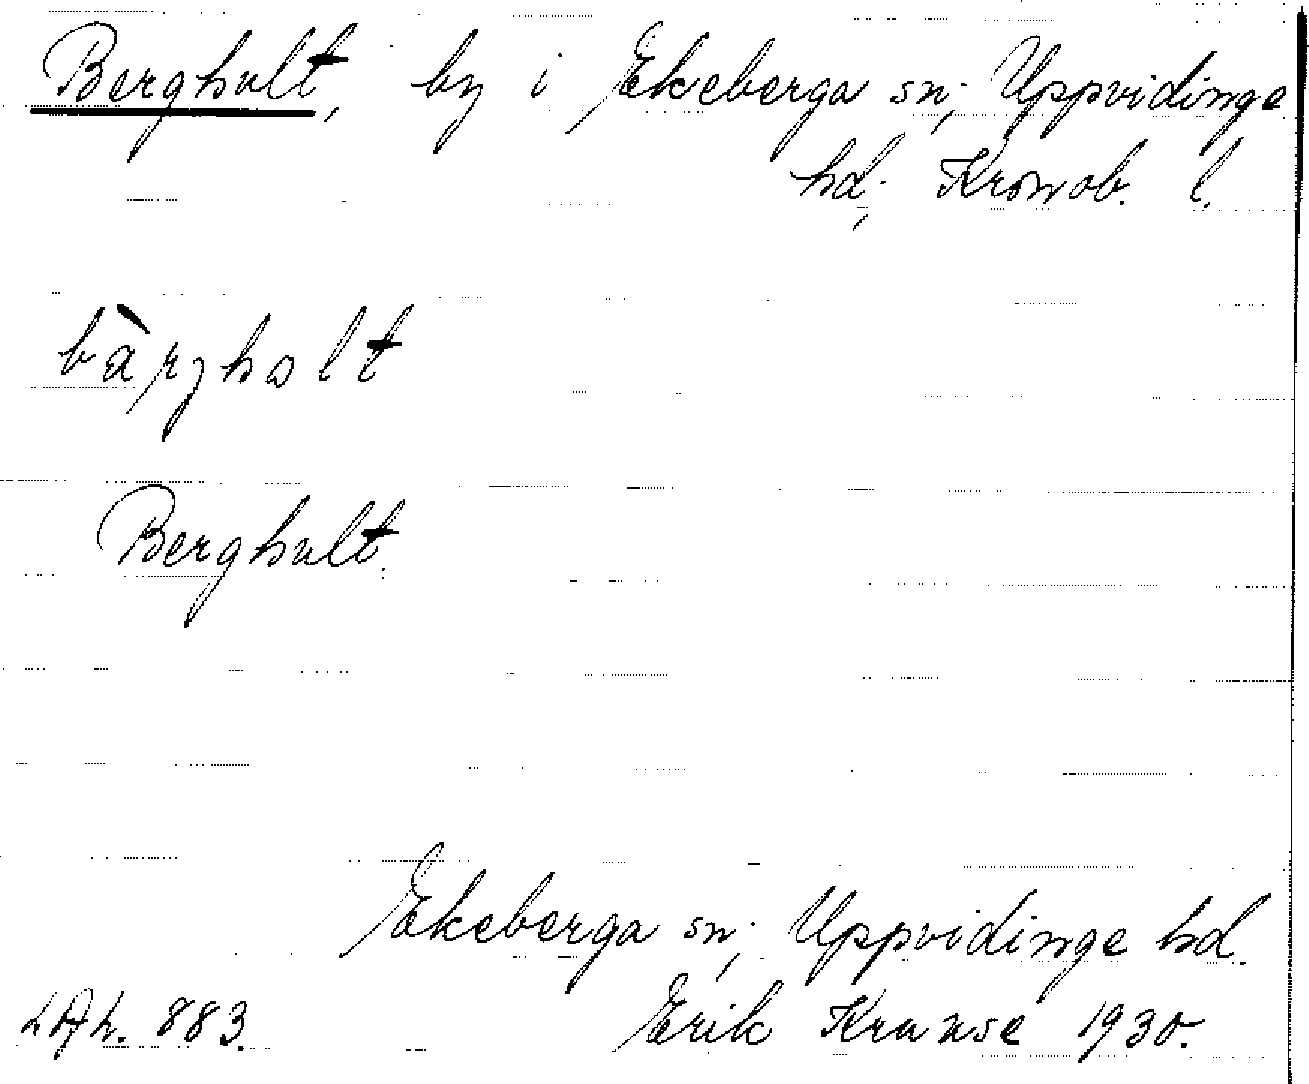 Berghult, by i Ekeberga sn, Uppvidinge
hd, Kronob. l.
bàrjholt
Berghult.
Ekeberga sn, Uppvidinge hd.
LAL. 883.
Erik Krause 1930.